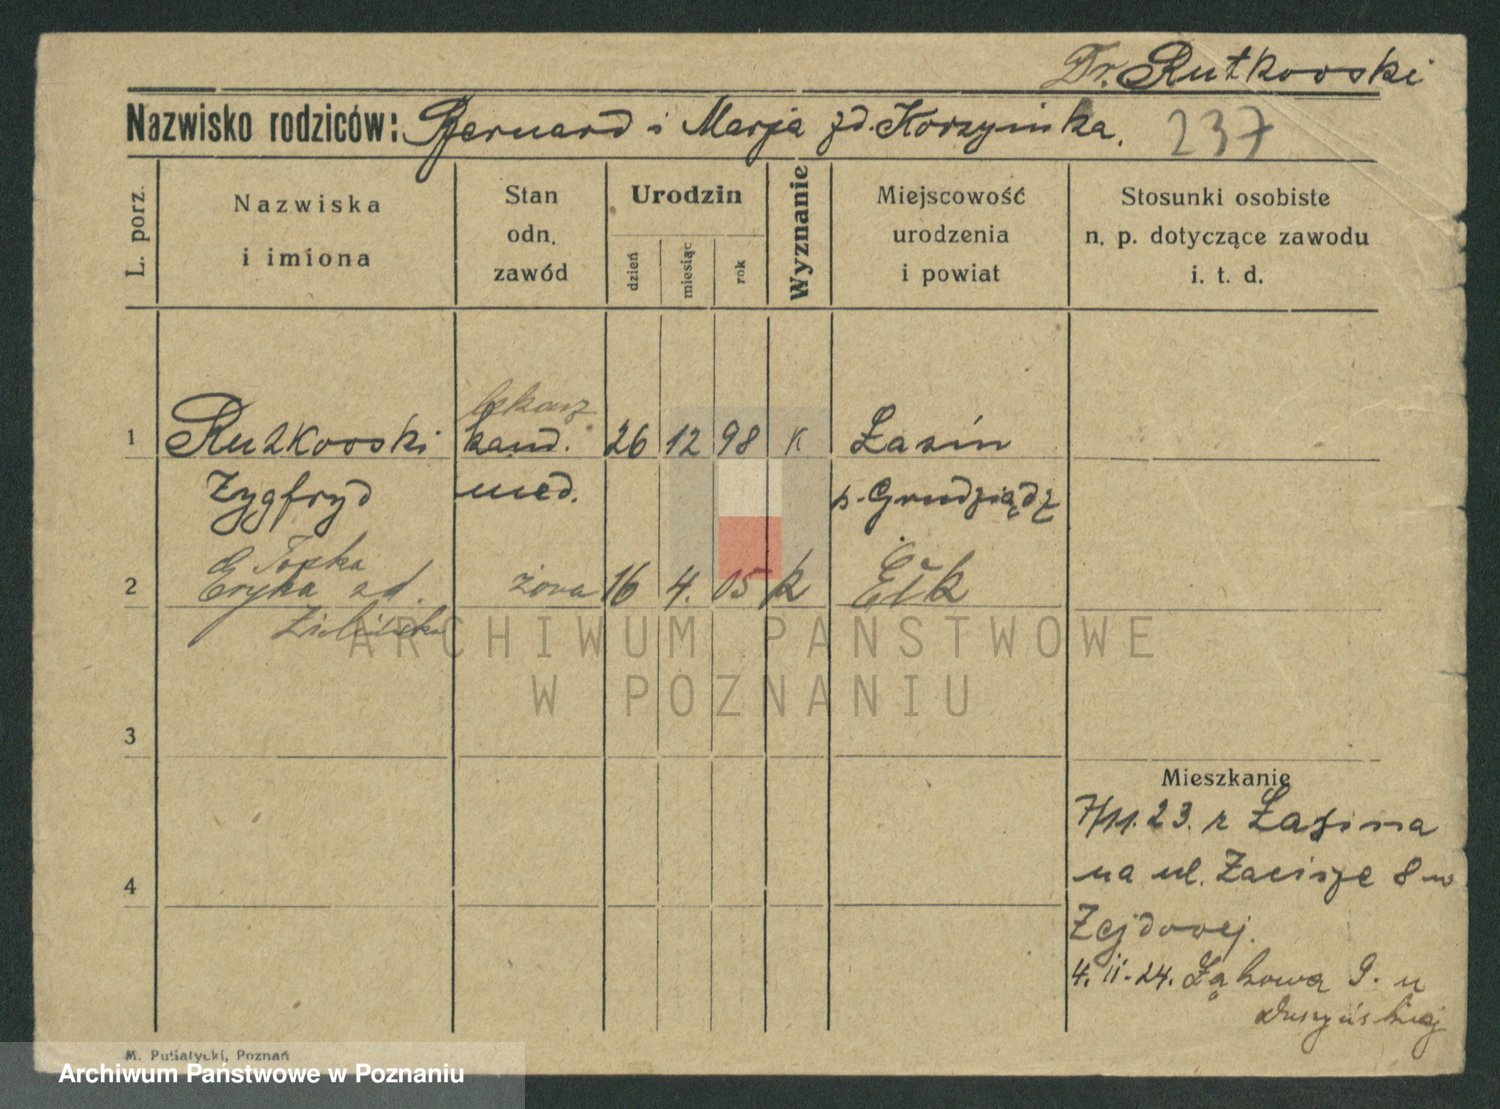 Dr. Rutkowski
Nazwisko rodziców: Bernard i Marja zd. Korzyńska. 237
L. porz.
Nazwiska
i imiona
Stan
odn.
zawód
Urodzin
dzień
miesiąc
rok
Wyznanie
Miejscowość
urodzenia
i powiat
Stosunki osobiste
n. p. dotyczące zawodu
i. t. d.
lekarz
1 Rutkowski kand. 26 12 98 K Łasin
Zygfryd med. p. Grudziądz
2 Eryka zd. żona 16 4. 05 k Ełk
Zielińska
ARCHIWUM PAŃSTWOWE
W POZNANIU
3
Mieszkanie
7/11.23. z Łasina
4 na ul. Zacisze 8 u
Zejdowej.
4.II-24. Łąkowa 9. u
Duszyńskiej
M. Putiatycki, Poznań
Archiwum Państwowe w Poznaniu